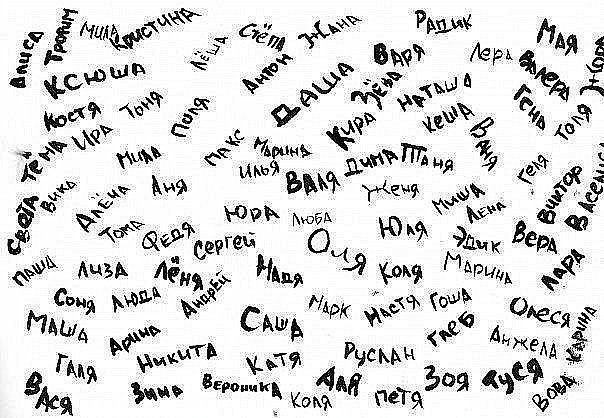 Алиса
Трофим
Мила
Кристина
Лёша
Стёпа
Жана
Радик
Варя
Лера
Мая
Жора
Ксюша
Антон
Даша
Зёва
Наташа
Валера
Костя
Тоня
Поля
Кира
Кеша
Ваня
Гена
Толя
Тёма
Ира
Мила
Макс
Марина
Илья
Дима
Таня
Геля
Виктор
Василиса
Света
Вика
Алёна
Аня
Валя
Женя
Миша
Лена
Тома
Федя
Юра
Люба
Юля
Эдик
Вера
Сергей
Оля
Паша
Лиза
Лёня
Андрей
Надя
Коля
Марина
Лара
Соня
Люда
Марк
Настя
Гоша
Глеб
Олеся
Маша
Арина
Саша
Анжела
Карина
Галя
Никита
Катя
Руслан
Вася
Зина
Вероника
Коля
Аля
Петя
Зоя
Дуся
Вова